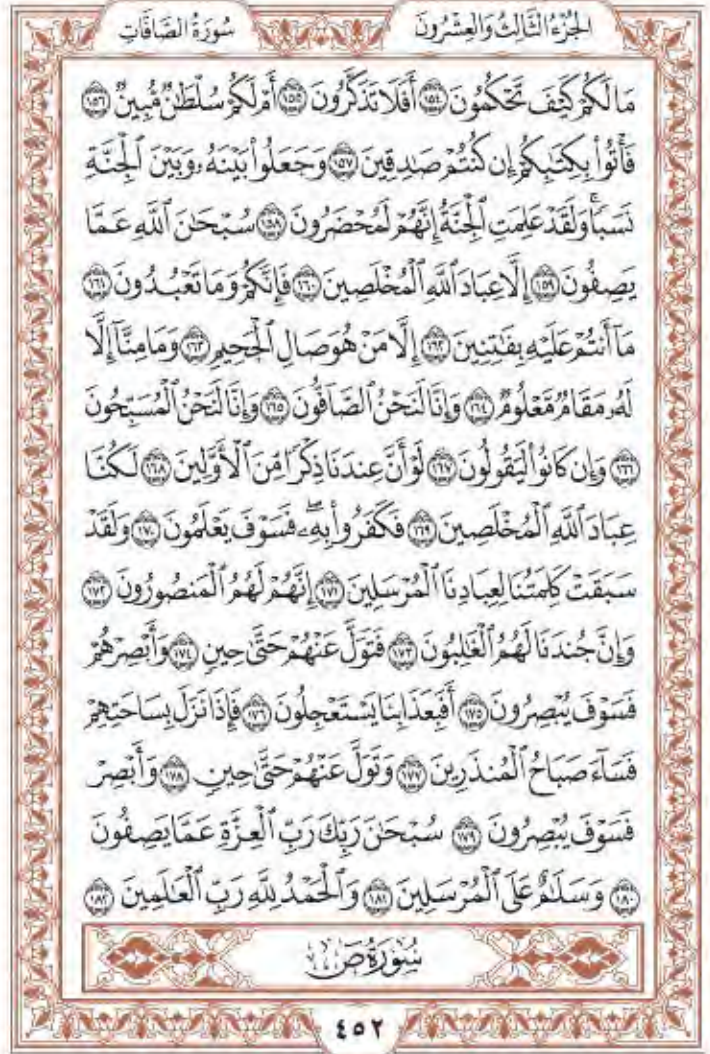 الجُزْءُ الثَّالِثُ وَالعِشْرُونَ سُورَةُ الصَّافَّاتِ
مَا لَكُمْ كَيْفَ تَحْكُمُونَ ١٥٤ أَفَلَا تَذَكَّرُونَ ١٥٥ أَمْ لَكُمْ سُلْطَٰنٌ مُّبِينٌ ١٥٦
فَأْتُوا۟ بِكِتَٰبِكُمْ إِن كُنتُمْ صَٰدِقِينَ ١٥٧ وَجَعَلُوا۟ بَيْنَهُۥ وَبَيْنَ ٱلْجِنَّةِ
نَسَبًاۚ وَلَقَدْ عَلِمَتِ ٱلْجِنَّةُ إِنَّهُمْ لَمُحْضَرُونَ ١٥٨ سُبْحَٰنَ ٱللَّهِ عَمَّا
يَصِفُونَ ١٥٩ إِلَّا عِبَادَ ٱللَّهِ ٱلْمُخْلَصِينَ ١٦٠ فَإِنَّكُمْ وَمَا تَعْبُدُونَ ١٦١
مَآ أَنتُمْ عَلَيْهِ بِفَٰتِنِينَ ١٦٢ إِلَّا مَنْ هُوَ صَالِ ٱلْجَحِيمِ ١٦٣ وَمَا مِنَّآ إِلَّا
لَهُۥ مَقَامٌ مَّعْلُومٌ ١٦٤ وَإِنَّا لَنَحْنُ ٱلصَّآفُّونَ ١٦٥ وَإِنَّا لَنَحْنُ ٱلْمُسَبِّحُونَ
١٦٦ وَإِن كَانُوا۟ لَيَقُولُونَ ١٦٧ لَوْ أَنَّ عِندَنَا ذِكْرًا مِّنَ ٱلْأَوَّلِينَ ١٦٨ لَكُنَّا
عِبَادَ ٱللَّهِ ٱلْمُخْلَصِينَ ١٦٩ فَكَفَرُوا۟ بِهِۦۖ فَسَوْفَ يَعْلَمُونَ ١٧٠ وَلَقَدْ
سَبَقَتْ كَلِمَتُنَا لِعِبَادِنَا ٱلْمُرْسَلِينَ ١٧١ إِنَّهُمْ لَهُمُ ٱلْمَنصُورُونَ ١٧٢
وَإِنَّ جُندَنَا لَهُمُ ٱلْغَٰلِبُونَ ١٧٣ فَتَوَلَّ عَنْهُمْ حَتَّىٰ حِينٍ ١٧٤ وَأَبْصِرْهُمْ
فَسَوْفَ يُبْصِرُونَ ١٧٥ أَفَبِعَذَابِنَا يَسْتَعْجِلُونَ ١٧٦ فَإِذَا نَزَلَ بِسَاحَتِهِمْ
فَسَآءَ صَبَاحُ ٱلْمُنذَرِينَ ١٧٧ وَتَوَلَّ عَنْهُمْ حَتَّىٰ حِينٍ ١٧٨ وَأَبْصِرْ
فَسَوْفَ يُبْصِرُونَ ١٧٩ سُبْحَٰنَ رَبِّكَ رَبِّ ٱلْعِزَّةِ عَمَّا يَصِفُونَ
١٨٠ وَسَلَٰمٌ عَلَى ٱلْمُرْسَلِينَ ١٨١ وَٱلْحَمْدُ لِلَّهِ رَبِّ ٱلْعَٰلَمِينَ ١٨٢
سُورَةُ صٓ
٤٥٢